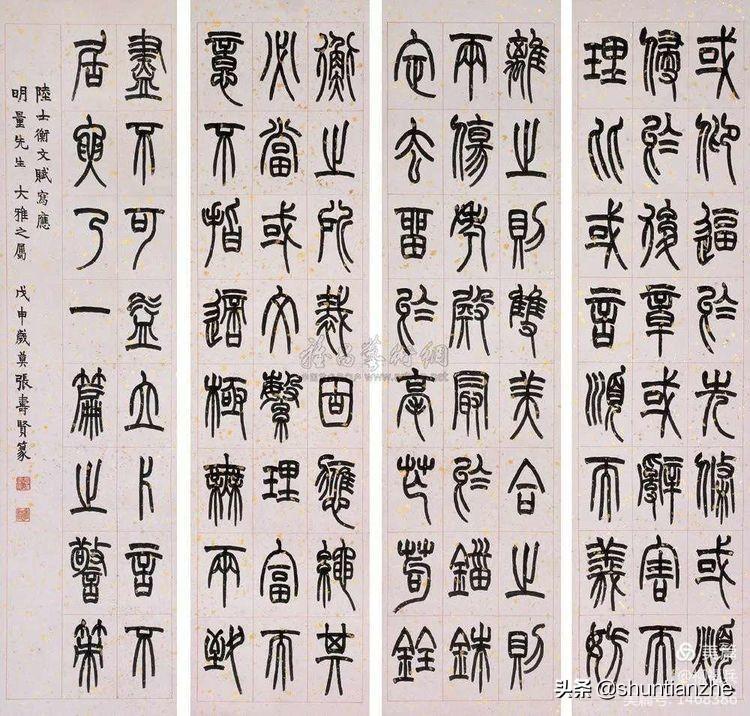 或仰逼於先條或頫
侵於後章或辭害而
理比或言順而義妨
離之則雙美合之則
兩傷考殿最於錙銖
定去留於毫芒苟銓
衡之所裁固應繩其
必當或文繁理富而
意不指適極無兩致
盡不可益立片言而
居要乃一篇之警策
陸士衡文賦寫應
明量先生大雅之屬 戊申歲莫張壽賢篆
雅昌藝術網
美篇
头条 @shuntianzhe